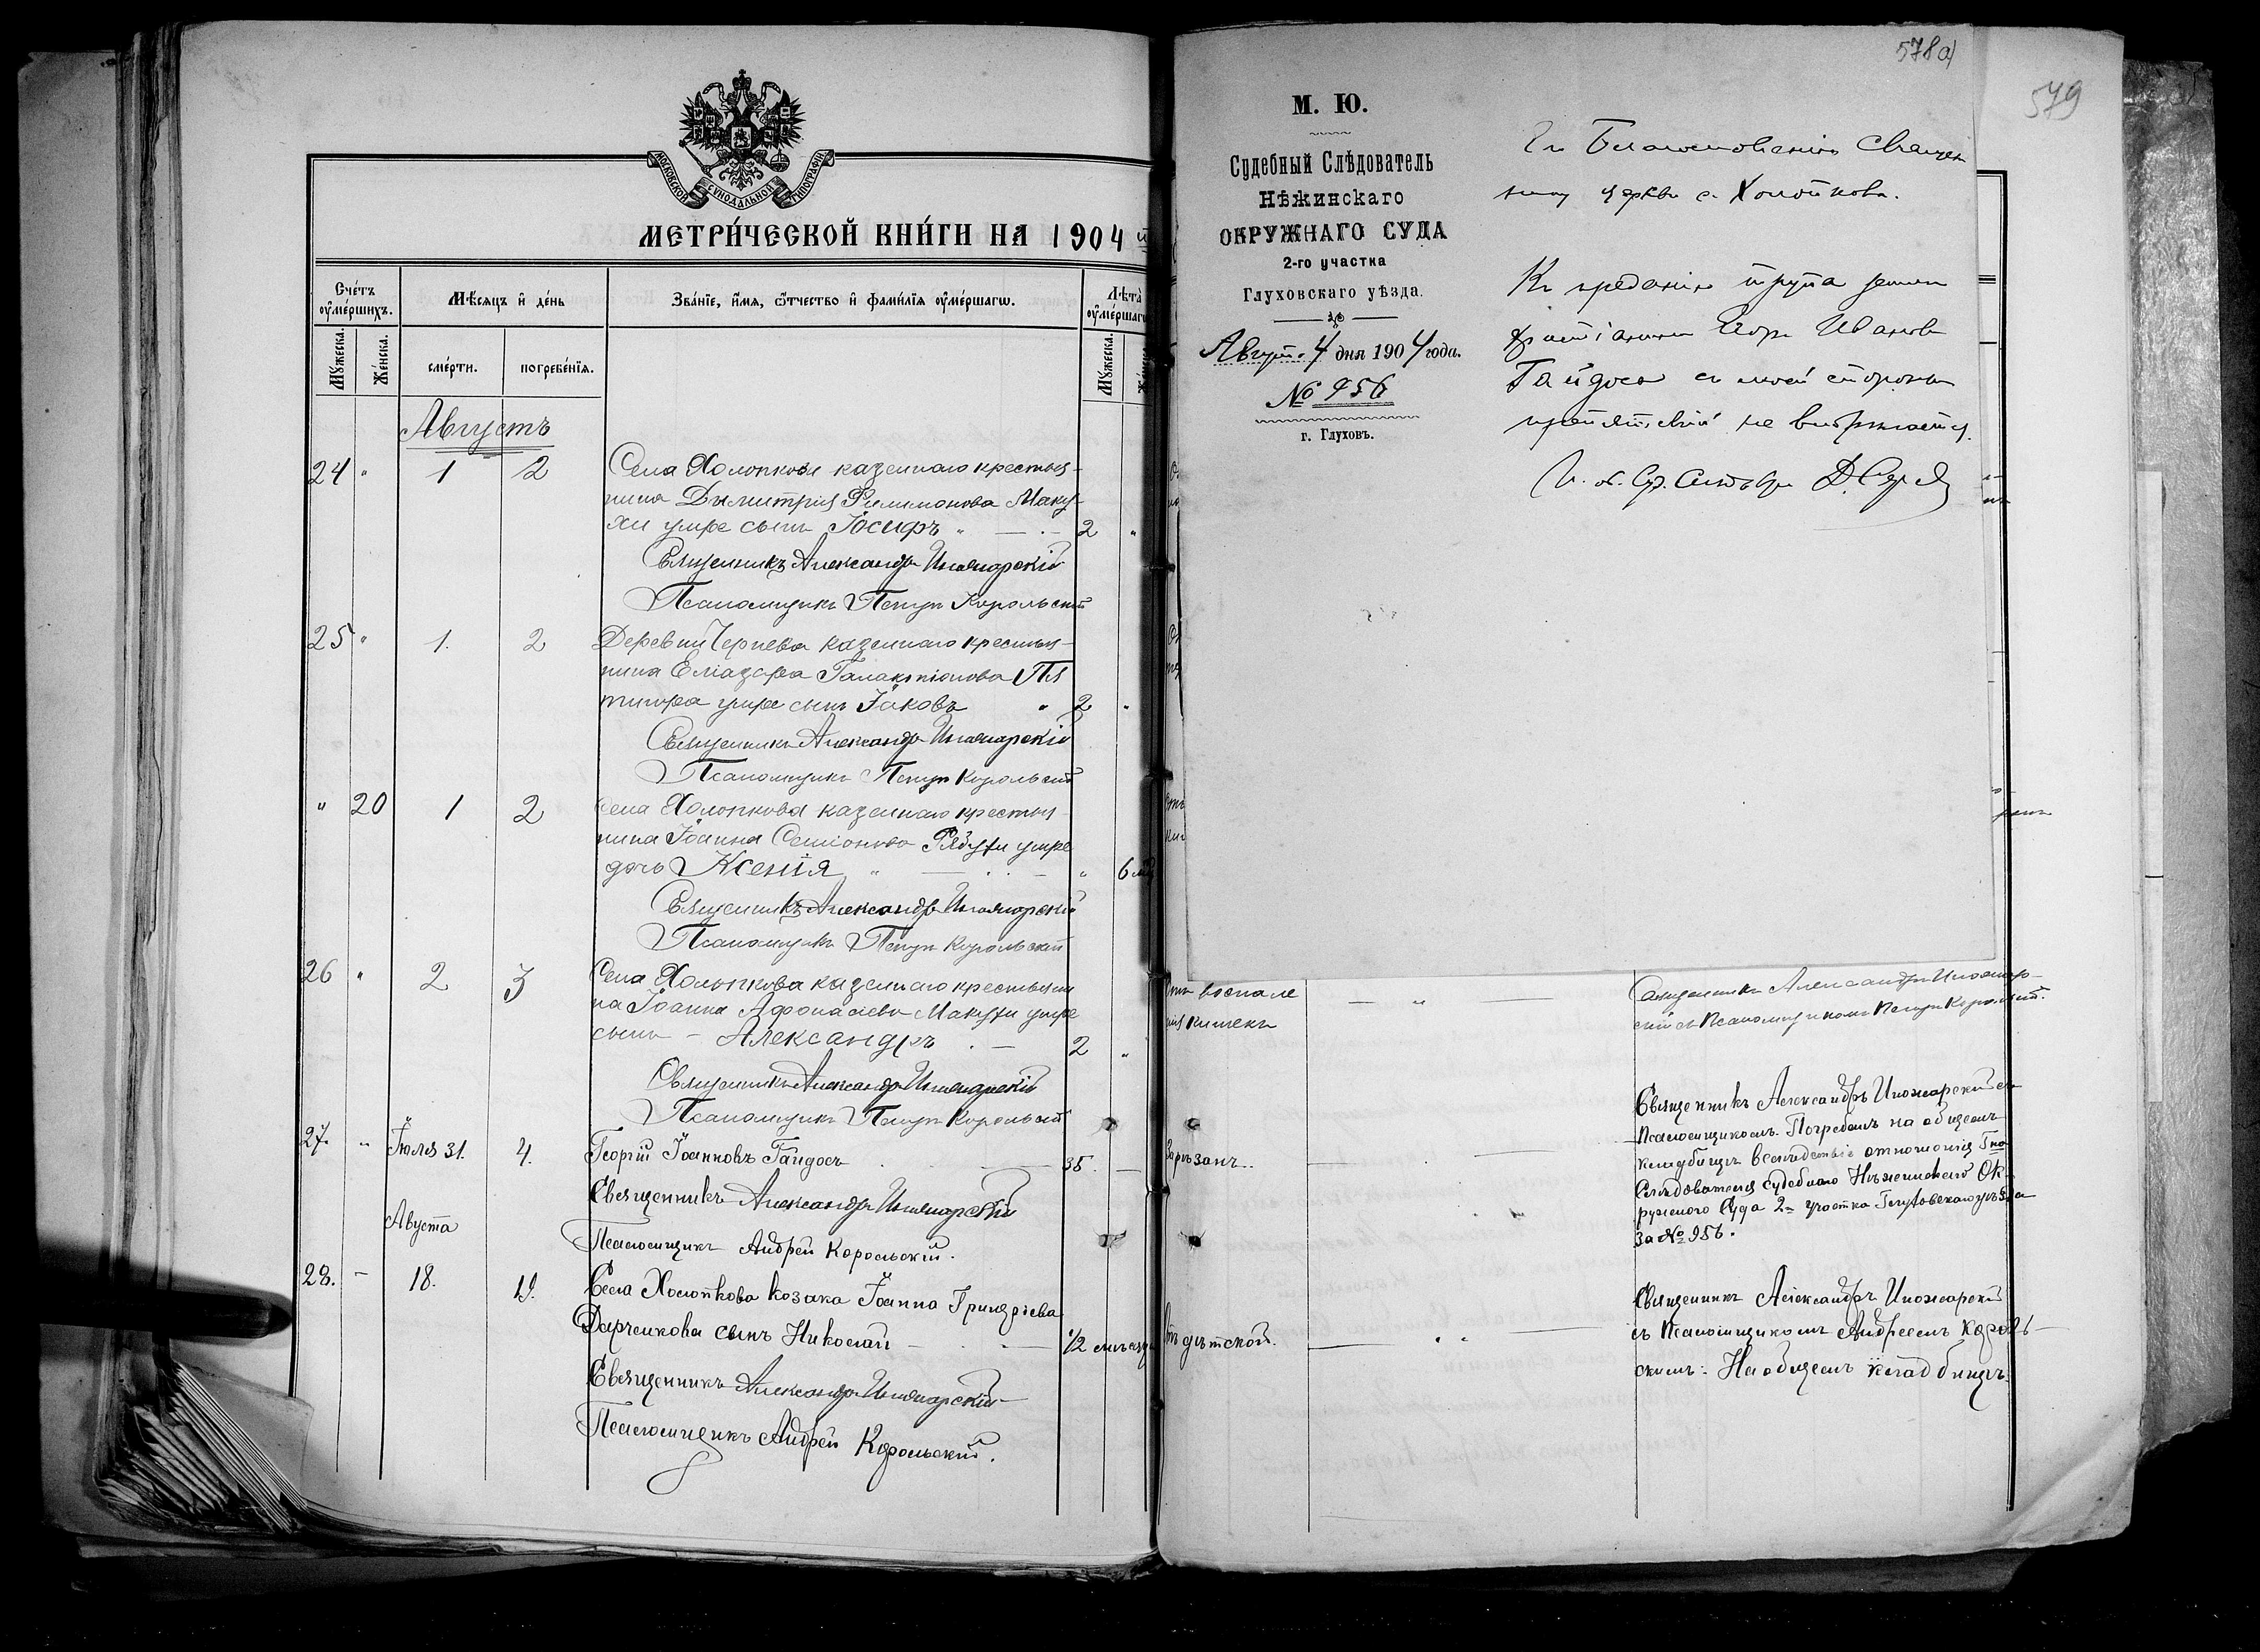 МОСКОВСКОЙ СѴНОДАЛЬНОЙ ТИПОГРАФІИ
МЕТРИ́ЧЕСКОЙ КНИ́ГИ НА 1904
Сче́тъ оу҆ме́ршихъ.
Мѣ́сяцъ и҆ де́нь
Зва́нїе, и҆́мя, ѻ҆́тчество и҆ фами́лїя оу҆ме́ршагѡ.
Лѣ́та оу҆ме́ршагѡ
Му́жеска.
Же́нска.
сме́рти.
погребе́нїя.
Му́жеска.
Августъ
24 " 1 2 Села Холопкова казеннаго крестья-
нина Дымитрия Филимонова Маку-
хи умре сынъ Іосифъ " 2 "
Священникъ Александръ Иножарскій
Псаломщикъ Петръ Корольскій
25 " 1. 2 Деревни Чернева казеннаго крестья-
нина Еліазара Галактіонова
умре сынъ Іаковъ " 2 "
Священникъ Александръ Иножарскій
Псаломщикъ Петръ Корольскій
" 20 1 2 Села Холопкова казеннаго крестья-
нина Іоанна Семіонова Рябухи умре
дочь Ксенія " " 6
Священникъ Александръ Иножарскій
Псаломщикъ Петръ Корольскій
26 " 2 3 Села Холопкова казеннаго крестьяни
на Іоанна Афонасіева Макухи умре
сынъ - Александръ 2 "
Священникъ Александръ Иножарскій
Псаломщикъ Петръ Корольскій
27. " Іюля 31. 4. Георгій Іоанновъ Гайдосъ 35. —
Священникъ Александръ Иножарскій
Августа
Псаломщикъ Андрей Корольскій.
28. - 18. 19. Села Холопкова козака Іоанна Григоріева
сынъ Николай — 1/2 мѣсяца
Священникъ Александръ Иножарскій
Псаломщикъ Андрей Корольскій.
578а)
579
М. Ю.
Судебный Слѣдователь
Нѣжинскаго
ОКРУЖНАГО СУДА
2-го участка
Глуховскаго уѣзда.
Август. 4 дня 1904 года.
№ 956
г. Глуховъ.
Его Благословенію Священ
нику церкви с. Холопкова.
Къ преданію трупа земли
крестьянина Егора Иванов
Гайдоса съ моей стороны
препятствій не встрѣчается.
И. об. Суд. Слѣдов.
воспале
кишекъ
— " —
Священникъ Александръ Иножар-
скій съ Псаломщикомъ Петръ Корольскій.
Зарѣзанъ..
Священникъ Александръ Иножарскій съ
Псаломщикомъ. Погребенъ на общемъ
кладбищѣ вслѣдствіе отношенія Гна
Слѣдователя судебнаго Нѣжинскаго Ок-
ружного Суда 2го участка Глуховскаго уѣзда
за № 956.
дѣтской.
Священникъ Александръ Иножарскій
съ Псаломщикомъ Андреемъ Король-
скимъ. На общемъ кладбищѣ.